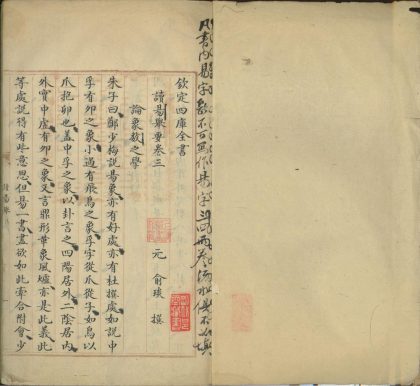 凡書内易字都不可寫作昜字
欽定四庫全書
讀易舉要卷三
元 俞琰 撰
論象數之學
朱子曰鄭少梅説易象亦有好處亦有杜撰處如説中
孚有卵之象小過有飛鳥之象孚字從爪從子如鳥以
爪抱卵也盖中孚之象以卦言之四陽居外二陰居内
外實中虚有卵之象又言鼎形革象風爐亦是此義此
等處説得有些意思但易一書盡欲如此牽合附會少